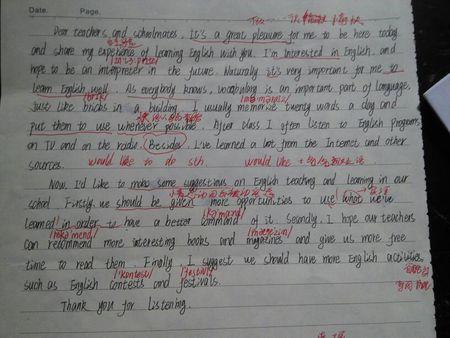 Date. Page.
Dear teachers and schoolmates, it's a great pleasure for me to be here today
and share my experience of learning English with you. I'm interested in English, and
hope to be an interpreter in the future. Naturally it's very important for me to
learn English well. As everybody knows, vocabulary is an important part of language,
just like bricks in a building. I usually memorize twenty words a day and
put them to use whenever possible. After class I often listen to English programs
on TV and on the radio. Besides, I've learned a lot from the Internet and other
sources. would like to do sth. would like
Now, I'd like to make some suggestions on English teaching and learning in our
school. Firstly, we should be given more opportunities to use what we've
learned in order to have a better command of it. Secondly, I hope our teachers
can recommend more interesting books and magazines and give us more free
time to read them. Finally, I suggest we should have more English activities
such as English contests and festivals.
Thank you for listening.